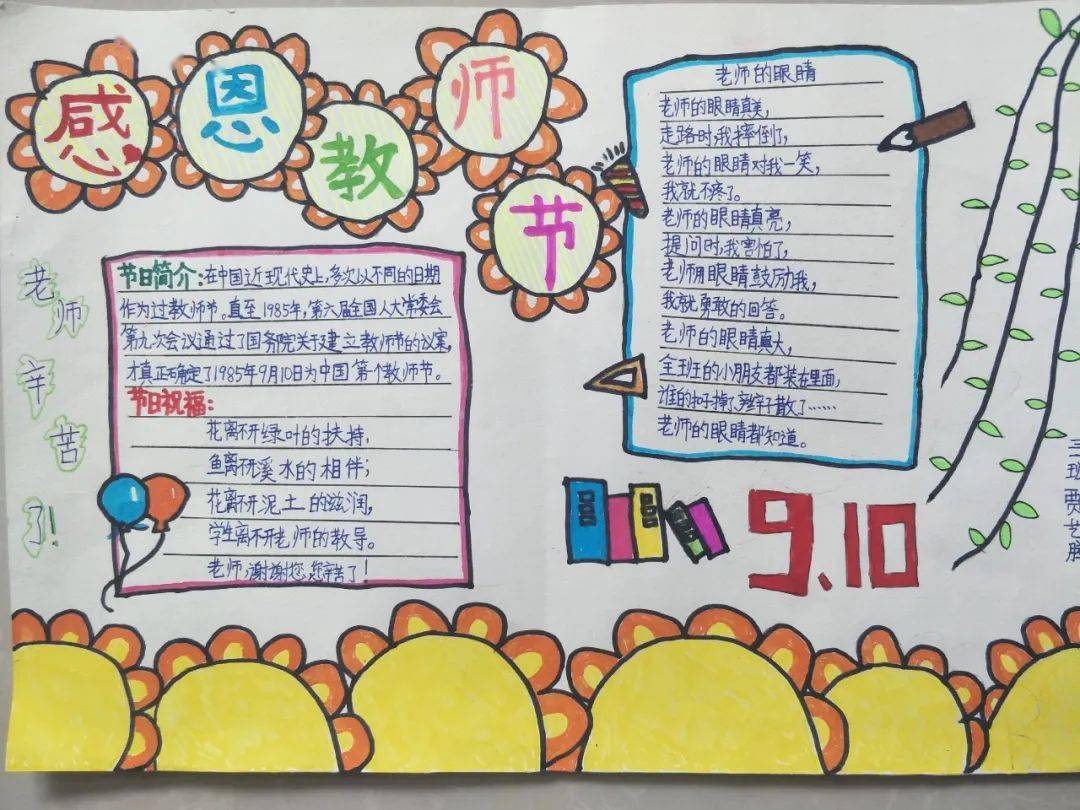 感恩教师节
老师辛苦了!
节日简介:在中国近现代史上,多次以不同的日期
作为过教师节。直至1985年,第六届全国人大常委会
第九次会议通过了国务院关于建立教师节的议案,
才真正确定了1985年9月10日为中国第个教师节。
节日祝福:
花离不开绿叶的扶持,
鱼离不开溪水的相伴;
花离不开泥土的滋润,
学生离不开老师的教导。
老师,谢谢您,您辛苦了!
老师的眼睛
老师的眼睛真美,
走路时,我摔倒了,
老师的眼睛对我一笑,
我就不疼了。
老师的眼睛真亮,
提问时,我害怕了,
老师用眼睛鼓励我,
我就勇敢的回答。
老师的眼睛真大,
全班的小朋友都装在里面,
谁的扣子掉了,辫子散了……
老师的眼睛都知道。
9.10
三班贾艺腾